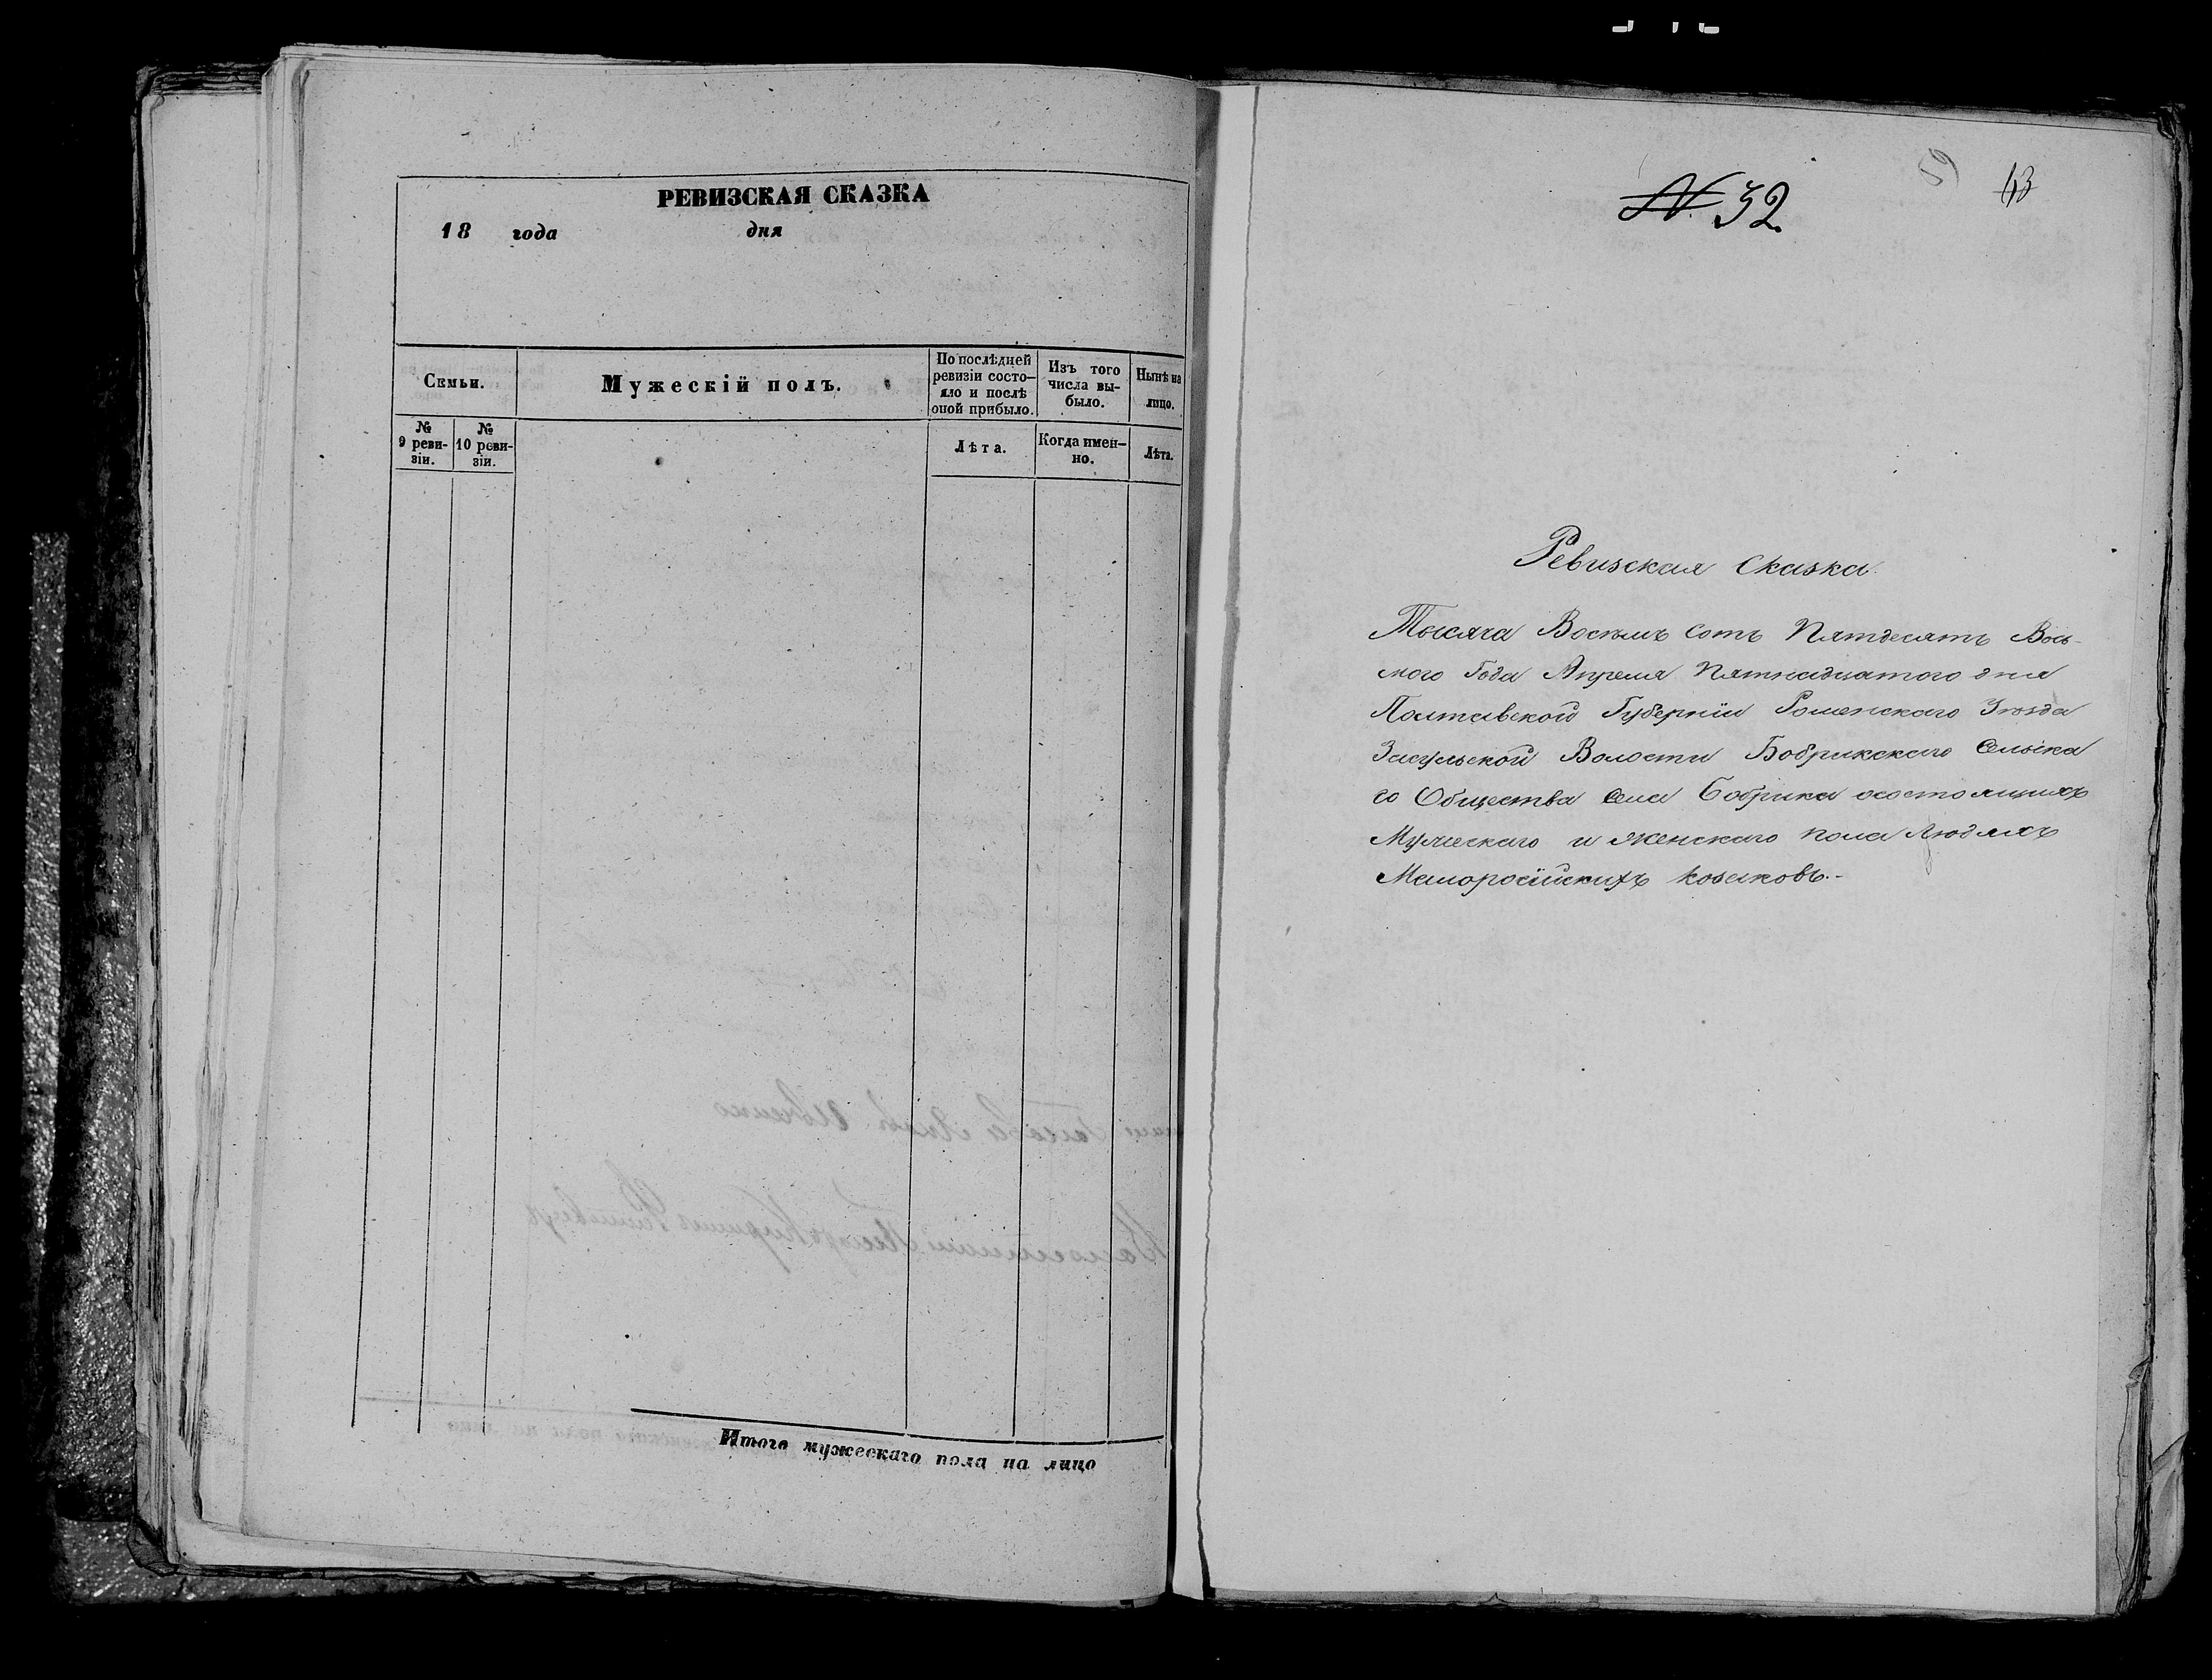 РЕВИЗСКАЯ СКАЗКА
18 года дня
Семьи.
Мужескій полъ.
По послѣдней ревизіи состо-
яло и послѣ оной прибыло.
Изъ того числа вы-
было.
Нынѣ на лицо.
№ 9 реви-
зіи.
№ 10 реви-
зіи.
Лѣта.
Когда имен-
но.
Лѣта.
Итого мужескаго пола на лицо
№ 32
43
Ревизская Сказка.
Тысяча Восемъ сотъ Пятдесятъ Вось-
мого Года Апреля Пятнадцатого дня
Полтавской Губерніи Роменскаго Уѣзда
Засульской Волости Бобрикскаго Сельска
го Общества Села Бобрика осостоящихъ
Мужескаго и Женскаго пола Людяхъ
Малоросійскихъ козаковъ.-